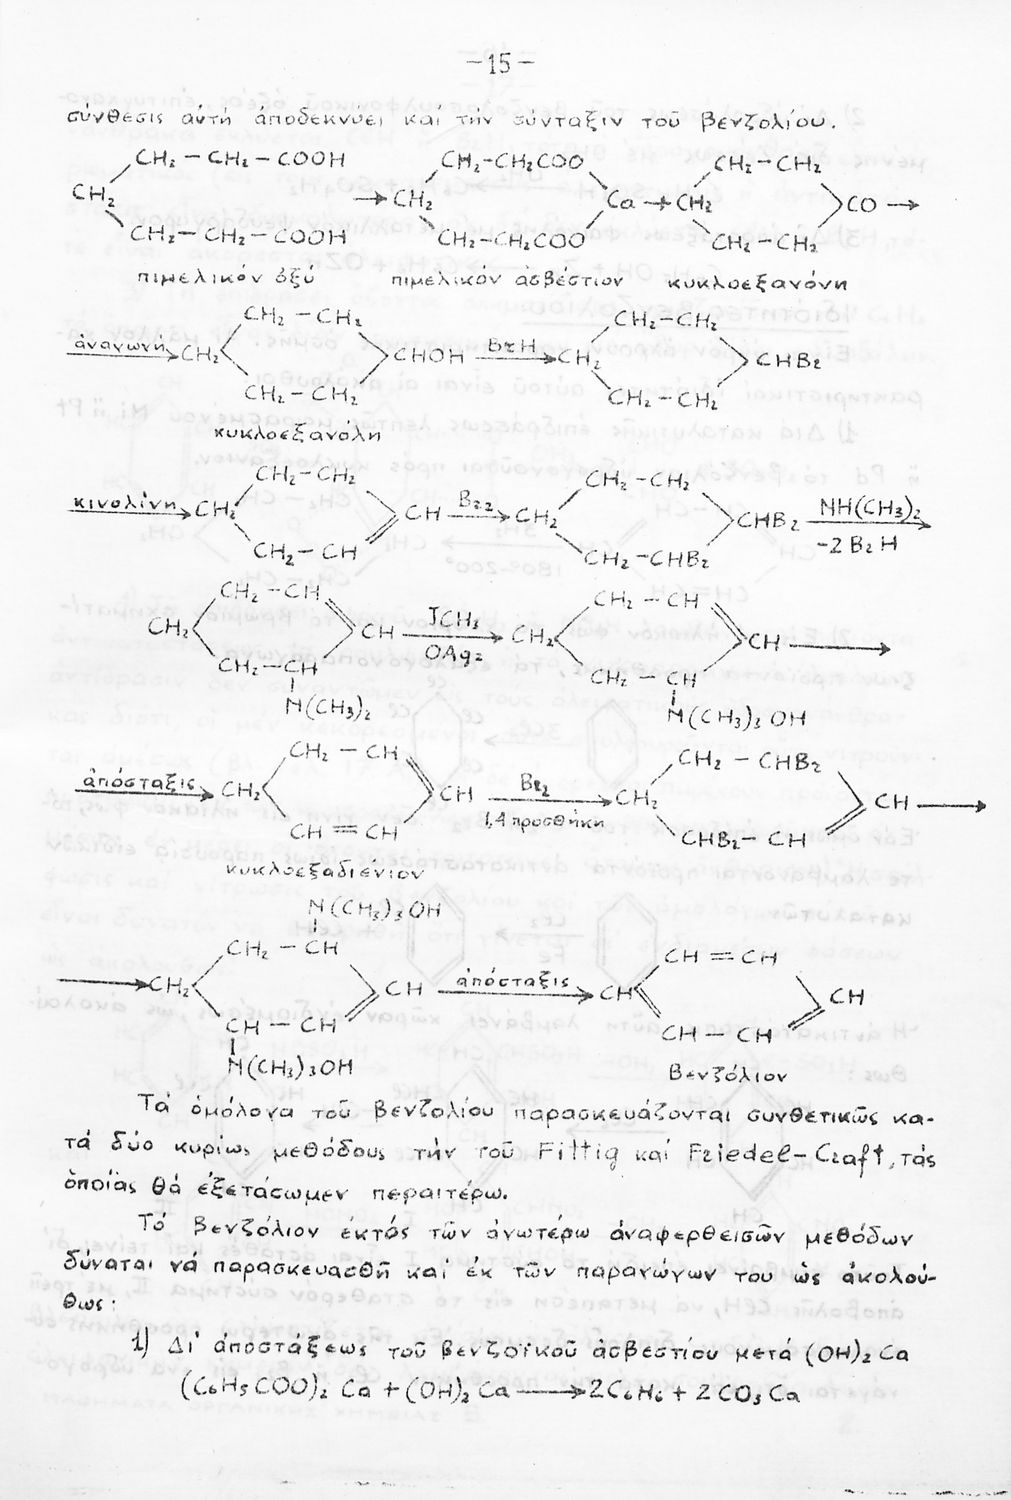 -15-
σύνθεσις αὐτή ἀποδεκνύει καί τήν σύνταξιν τοῦ βενζολίου.
CH₂ — CH₂ — COOH CH₂-CH₂COO CH₂-CH₂
CH₂ → CH₂ Ca → CH₂ CO →
CH₂ — CH₂ — COOH CH₂-CH₂COO CH₂-CH₂
πιμελικόν ὀξύ πιμελικόν ἀσβέστιον κυκλοεξανόνη
CH₂ — CH₂ CH₂-CH₂
ἀναγωγή → CH₂ CHOH BrH → CH₂ CHBr
CH₂ — CH₂ CH₂ — CH₂
κυκλοεξανόλη
CH₂-CH₂ CH₂ — CH₂
κινολίνη → CH₂ CH Br₂ → CH₂ CHBr NH(CH₃)₂ →
-2BrH
CH₂ — CH CH₂ — CHBr
CH₂ — CH CH₂ — CH
CH₂ CH JCH₃ → CH₂ CH →
OAg₂
CH₂ — CH CH₂ — CH
N(CH₃)₂ N(CH₃)₃OH
CH₂ — CH CH₂ — CHBr
ἀπόσταξις → CH₂ CH Br₂ → CH₂ CH →
1,4 προσθήκη
CH = CH CHBr — CH
κυκλοεξαδιένιον
N(CH₃)₃OH
CH₂ — CH CH = CH
→ CH₂ CH ἀπόσταξις → CH CH
CH — CH CH — CH
N(CH₃)₃OH Βενζόλιον
Τά ὁμόλογα τοῦ βενζολίου παρασκευάζονται συνθετικῶς κα-
τά δύο κυρίως μεθόδους τήν τοῦ Fittig καί Friedel-Craft, τάς
ὁποίας θά ἐξετάσωμεν περαιτέρω.
Τό Βενζόλιον ἐκτός τῶν ἀνωτέρω ἀναφερθεισῶν μεθόδων
δύναται νά παρασκευασθῆ καί ἐκ τῶν παραγώγων του ὡς ἀκολού-
θως:
1) Δι' ἀποστάξεως τοῦ βενζοϊκοῦ ἀσβεστίου μετά (OH)₂Ca
(C₆H₅COO)₂Ca + (OH)₂Ca → 2C₆H₆ + 2CO₃Ca